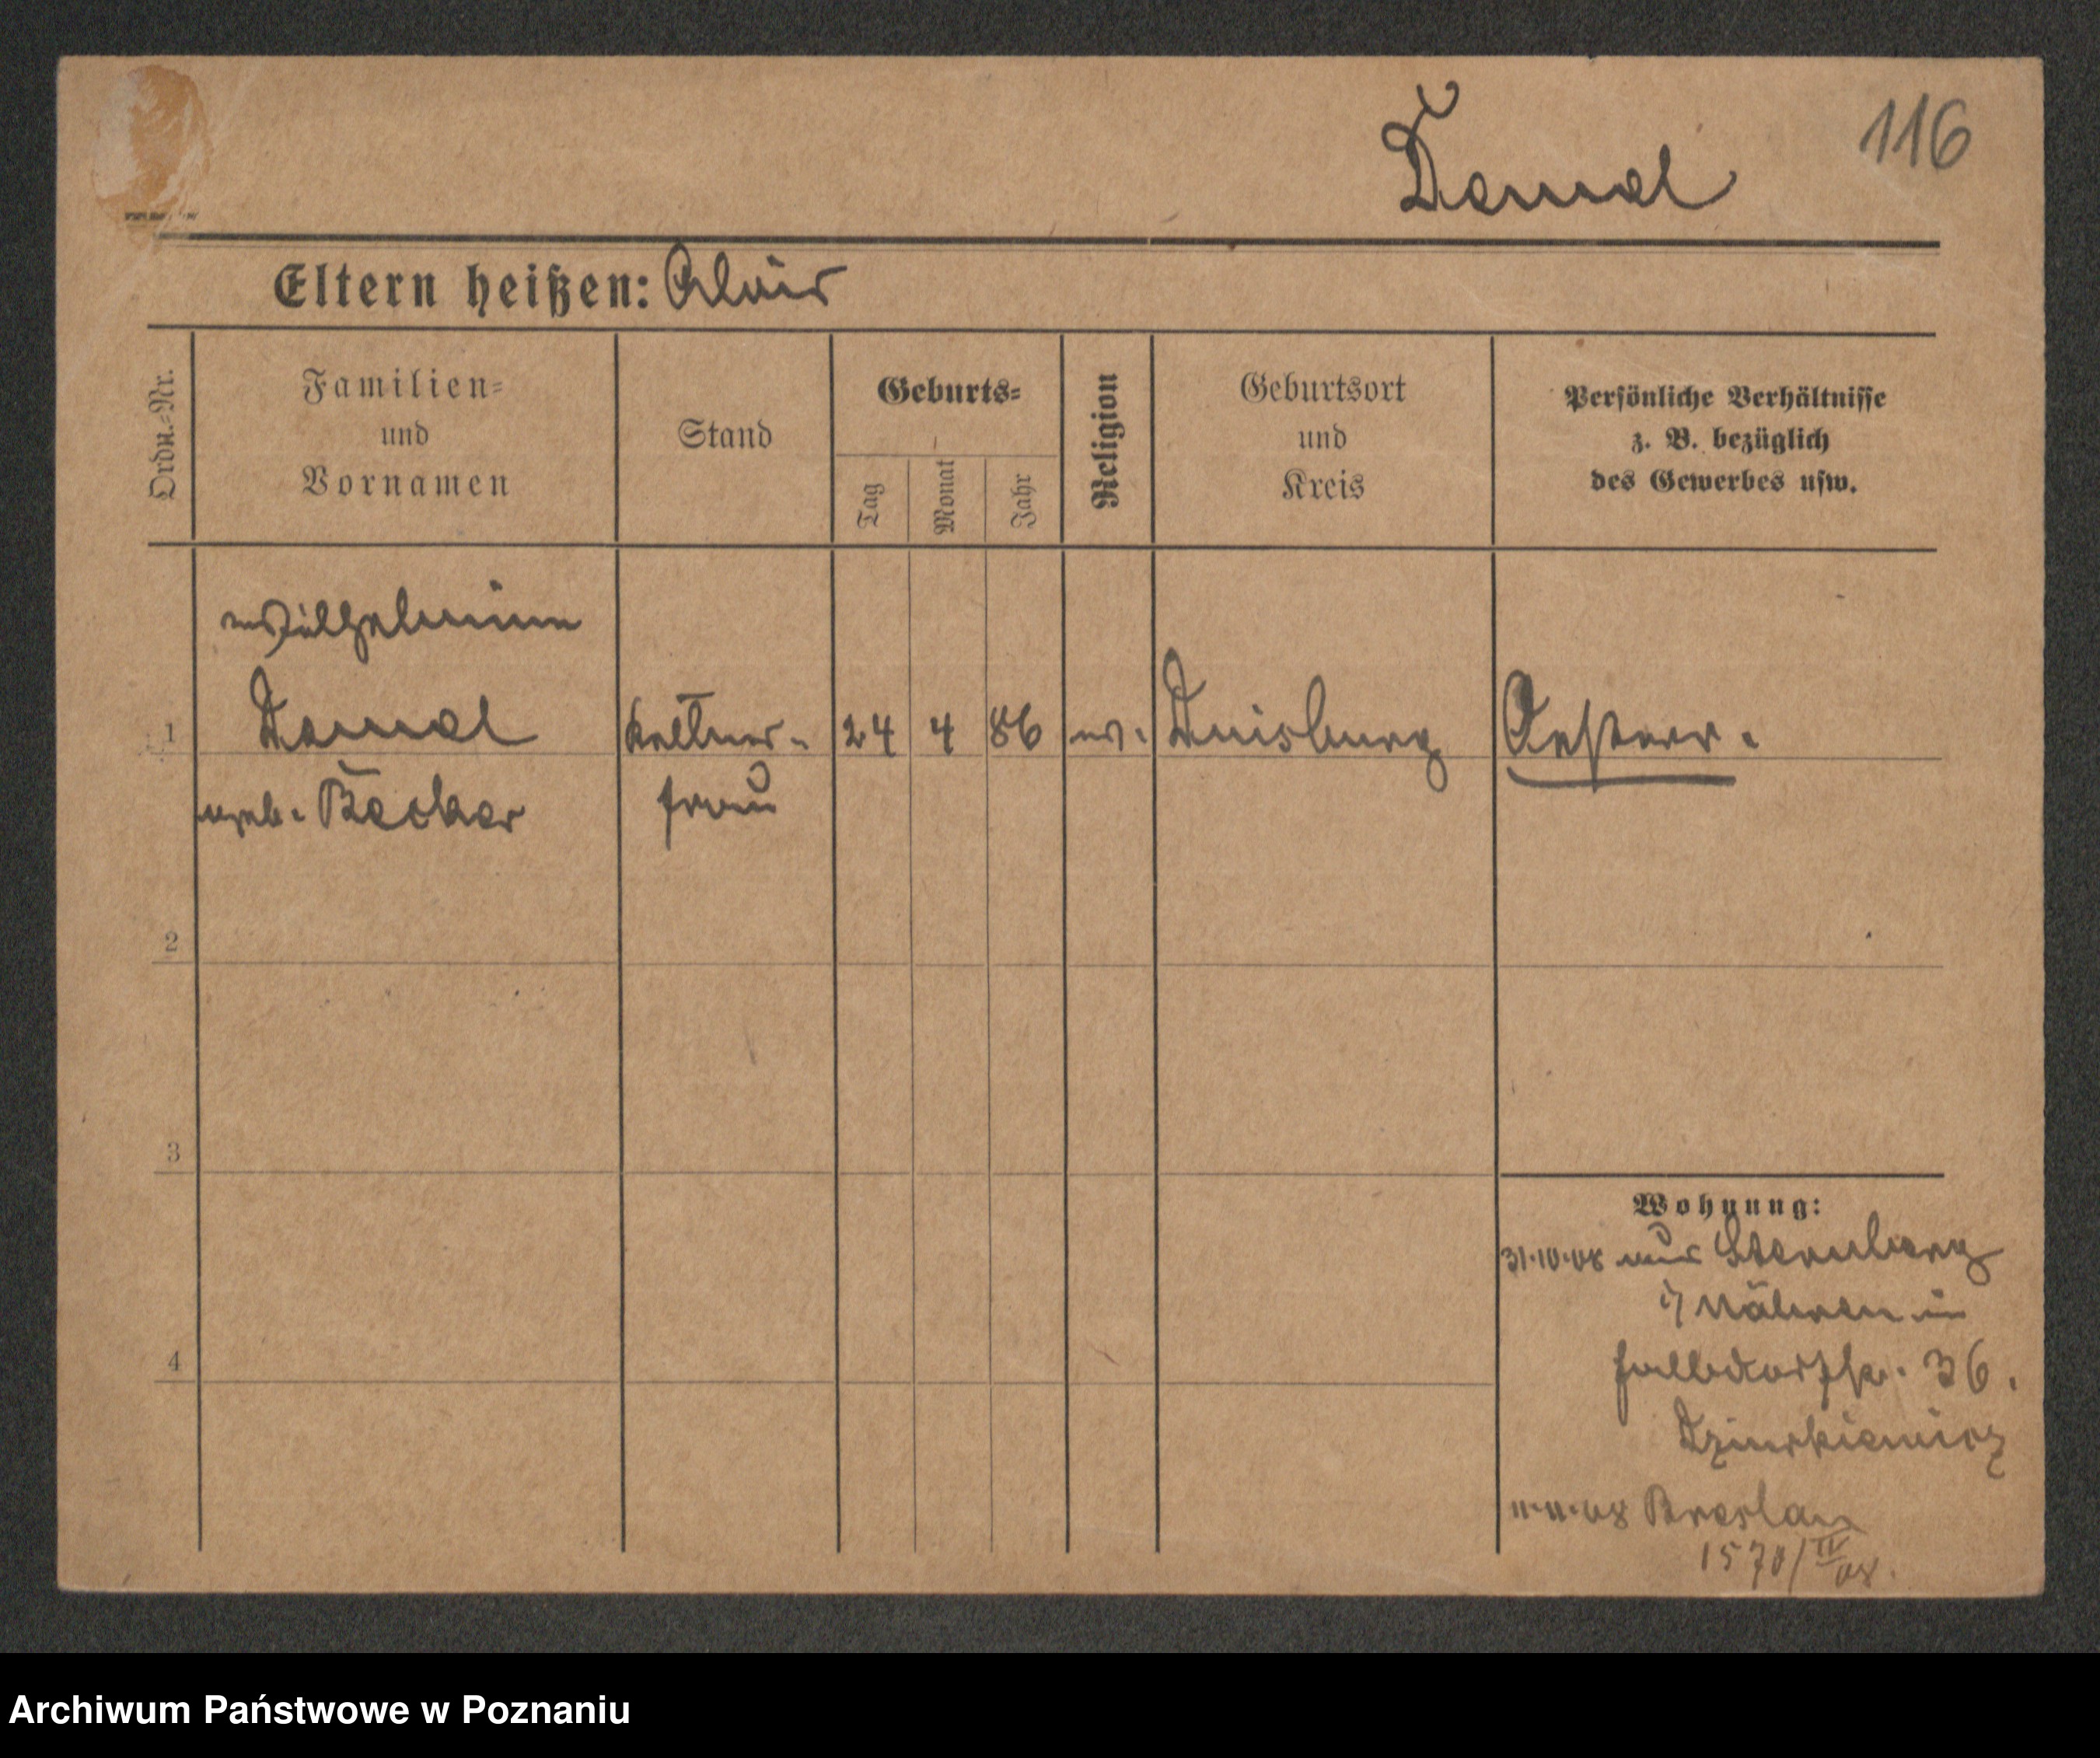 116
Domal
Eltern heißen: Alois
Ordn.-Nr.
Familien-
und
Vornamen
Stand
Geburts-
Tag
Monat
Jahr
Religion
Geburtsort
und
Kreis
Persönliche Verhältnisse
z. B. bezüglich
des Gewerbes usw.
Wilhelmine
1 Domal Kellner- 24 4 86 ev. Duisburg Oesterr.
geb. Becker frau
2
3
Wohnung:
31.10.08 aus Sternberg
i/ Mähren in
Halbdorfstr. 36.
4
11.11.08 Breslau
1570/IV 08.
Archiwum Państwowe w Poznaniu